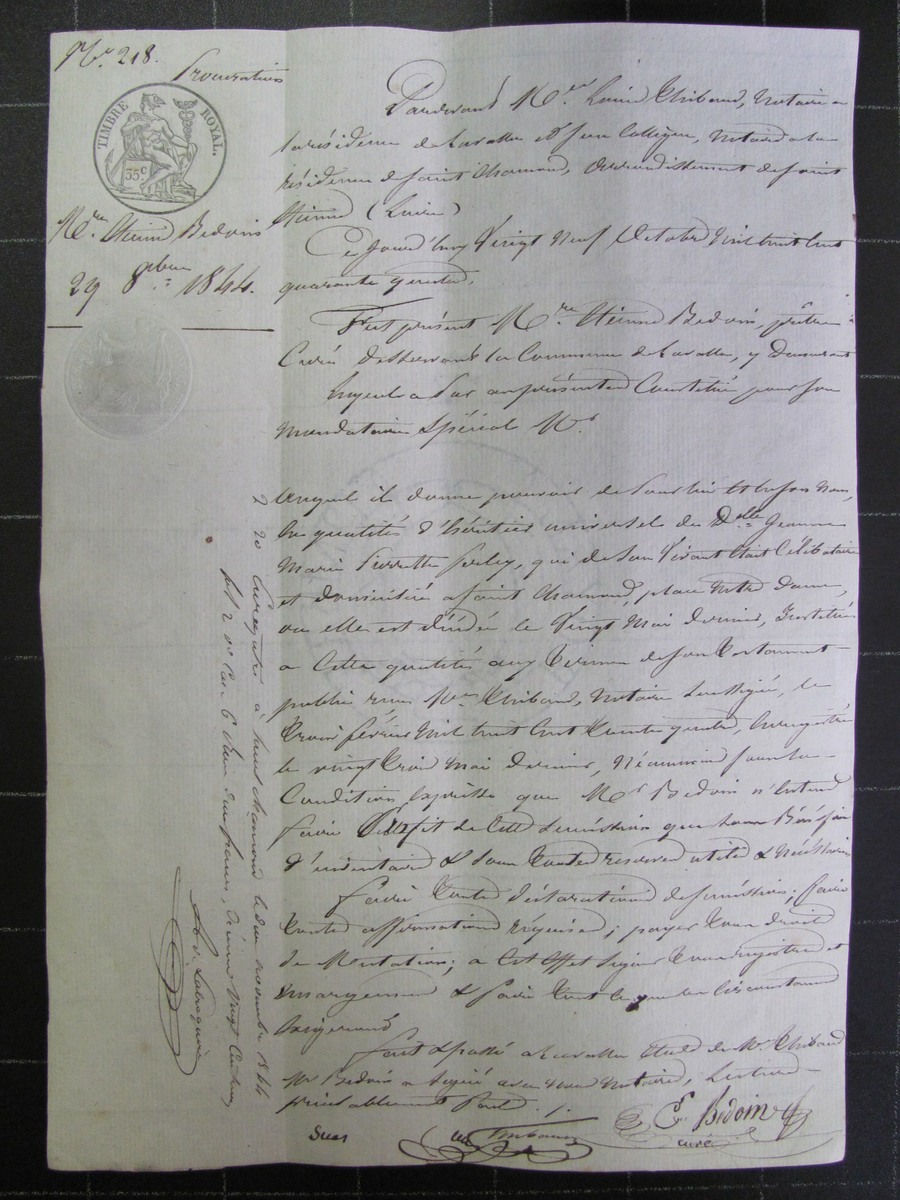 No. 218.
Procuration
TIMBRE ROYAL.
35c
Mre. Etienne Bedoin
29 8bre 1844.
Pardevant Me. Louis Thibaud, Notaire à
la résidence de Lavalla et son Collègue, Notaire à la
résidence de Saint Chamond, arrondissement de Saint
Etienne (Loire)
Ce jourd'huy Vingt Neuf Octobre Mil huit Cent
quarante quatre.
Fut présent Mre. Etienne Bedoin, prêtre
Curé desservant la Commune de Lavalla, y demeurant
Lequel a Par ces présentes Constitué pour son
Mandataire Spécial Mr
Auquel il donne pouvoir de Pour lui et en son Nom,
en qualité d'héritier universel de Dlle Jeanne
Marie Pierrette, qui de Son Vivant était Célibataire
et domiciliée à Saint Chamond, place Notre Dame,
où elle est décédée le Vingt Mai dernier, Institué
à Cette qualité aux termes de son Testament
publié Me Thibaud, Notaire Soussigné, le
Trois février Mil huit Cent Trente quatre, Enregistré
le vingt Trois Mai dernier, Néanmoins sous la
Condition Expresse que Mr Bedoin n'Entend
faire de Cette Succession que sous Bénéfice
d'inventaire & sous toutes réserves utiles & Nécessaires
Faire Toute déclaration de succession; faire
toutes affirmations requises; payer Tous droits
de Mutation; à Cet Effet Signer Tous registres et
émargemens & faire Tout ce que les Circonstances
Exigeront
Fait & passé à Lavalla Etude de Me Thibaud
Mr Bedoin a Signé avec nous Notaires, Lecture
préalablement
E Bedoin
curé
Thibaud
Enregistré à Saint Chamond le deux novembre 1844
fol 2 Vo Cas. 6 deux francs, décime Vingt Centimes